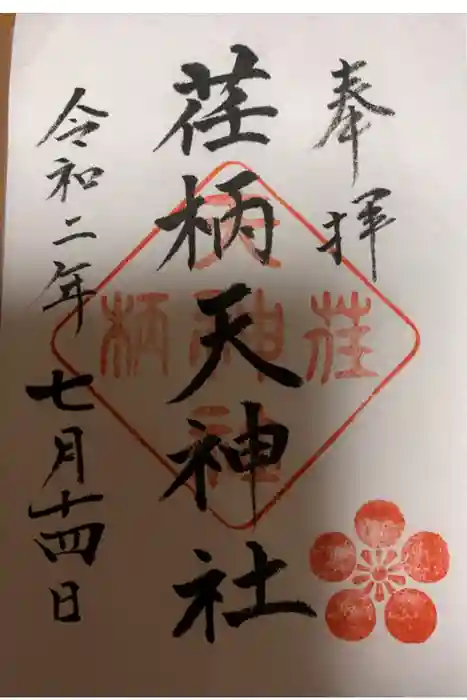 奉拝
荏柄天神社
令和二年七月十四日
荏
天神社
柄